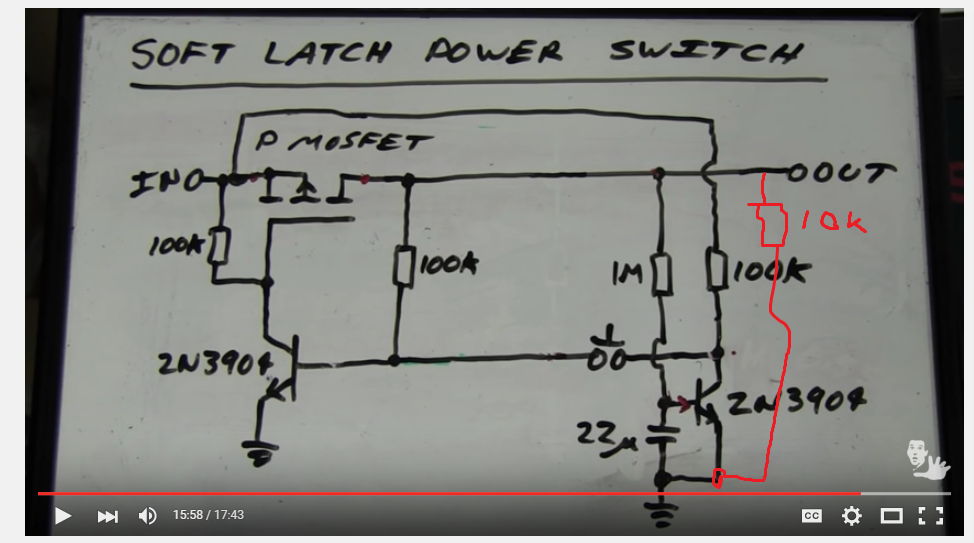 SOFT LATCH POWER SWITCH
P MOSFET
IN OUT
100K
10K
100K 1M 100K
2N3904
2N3904
22µ
15:58 / 17:43 CC